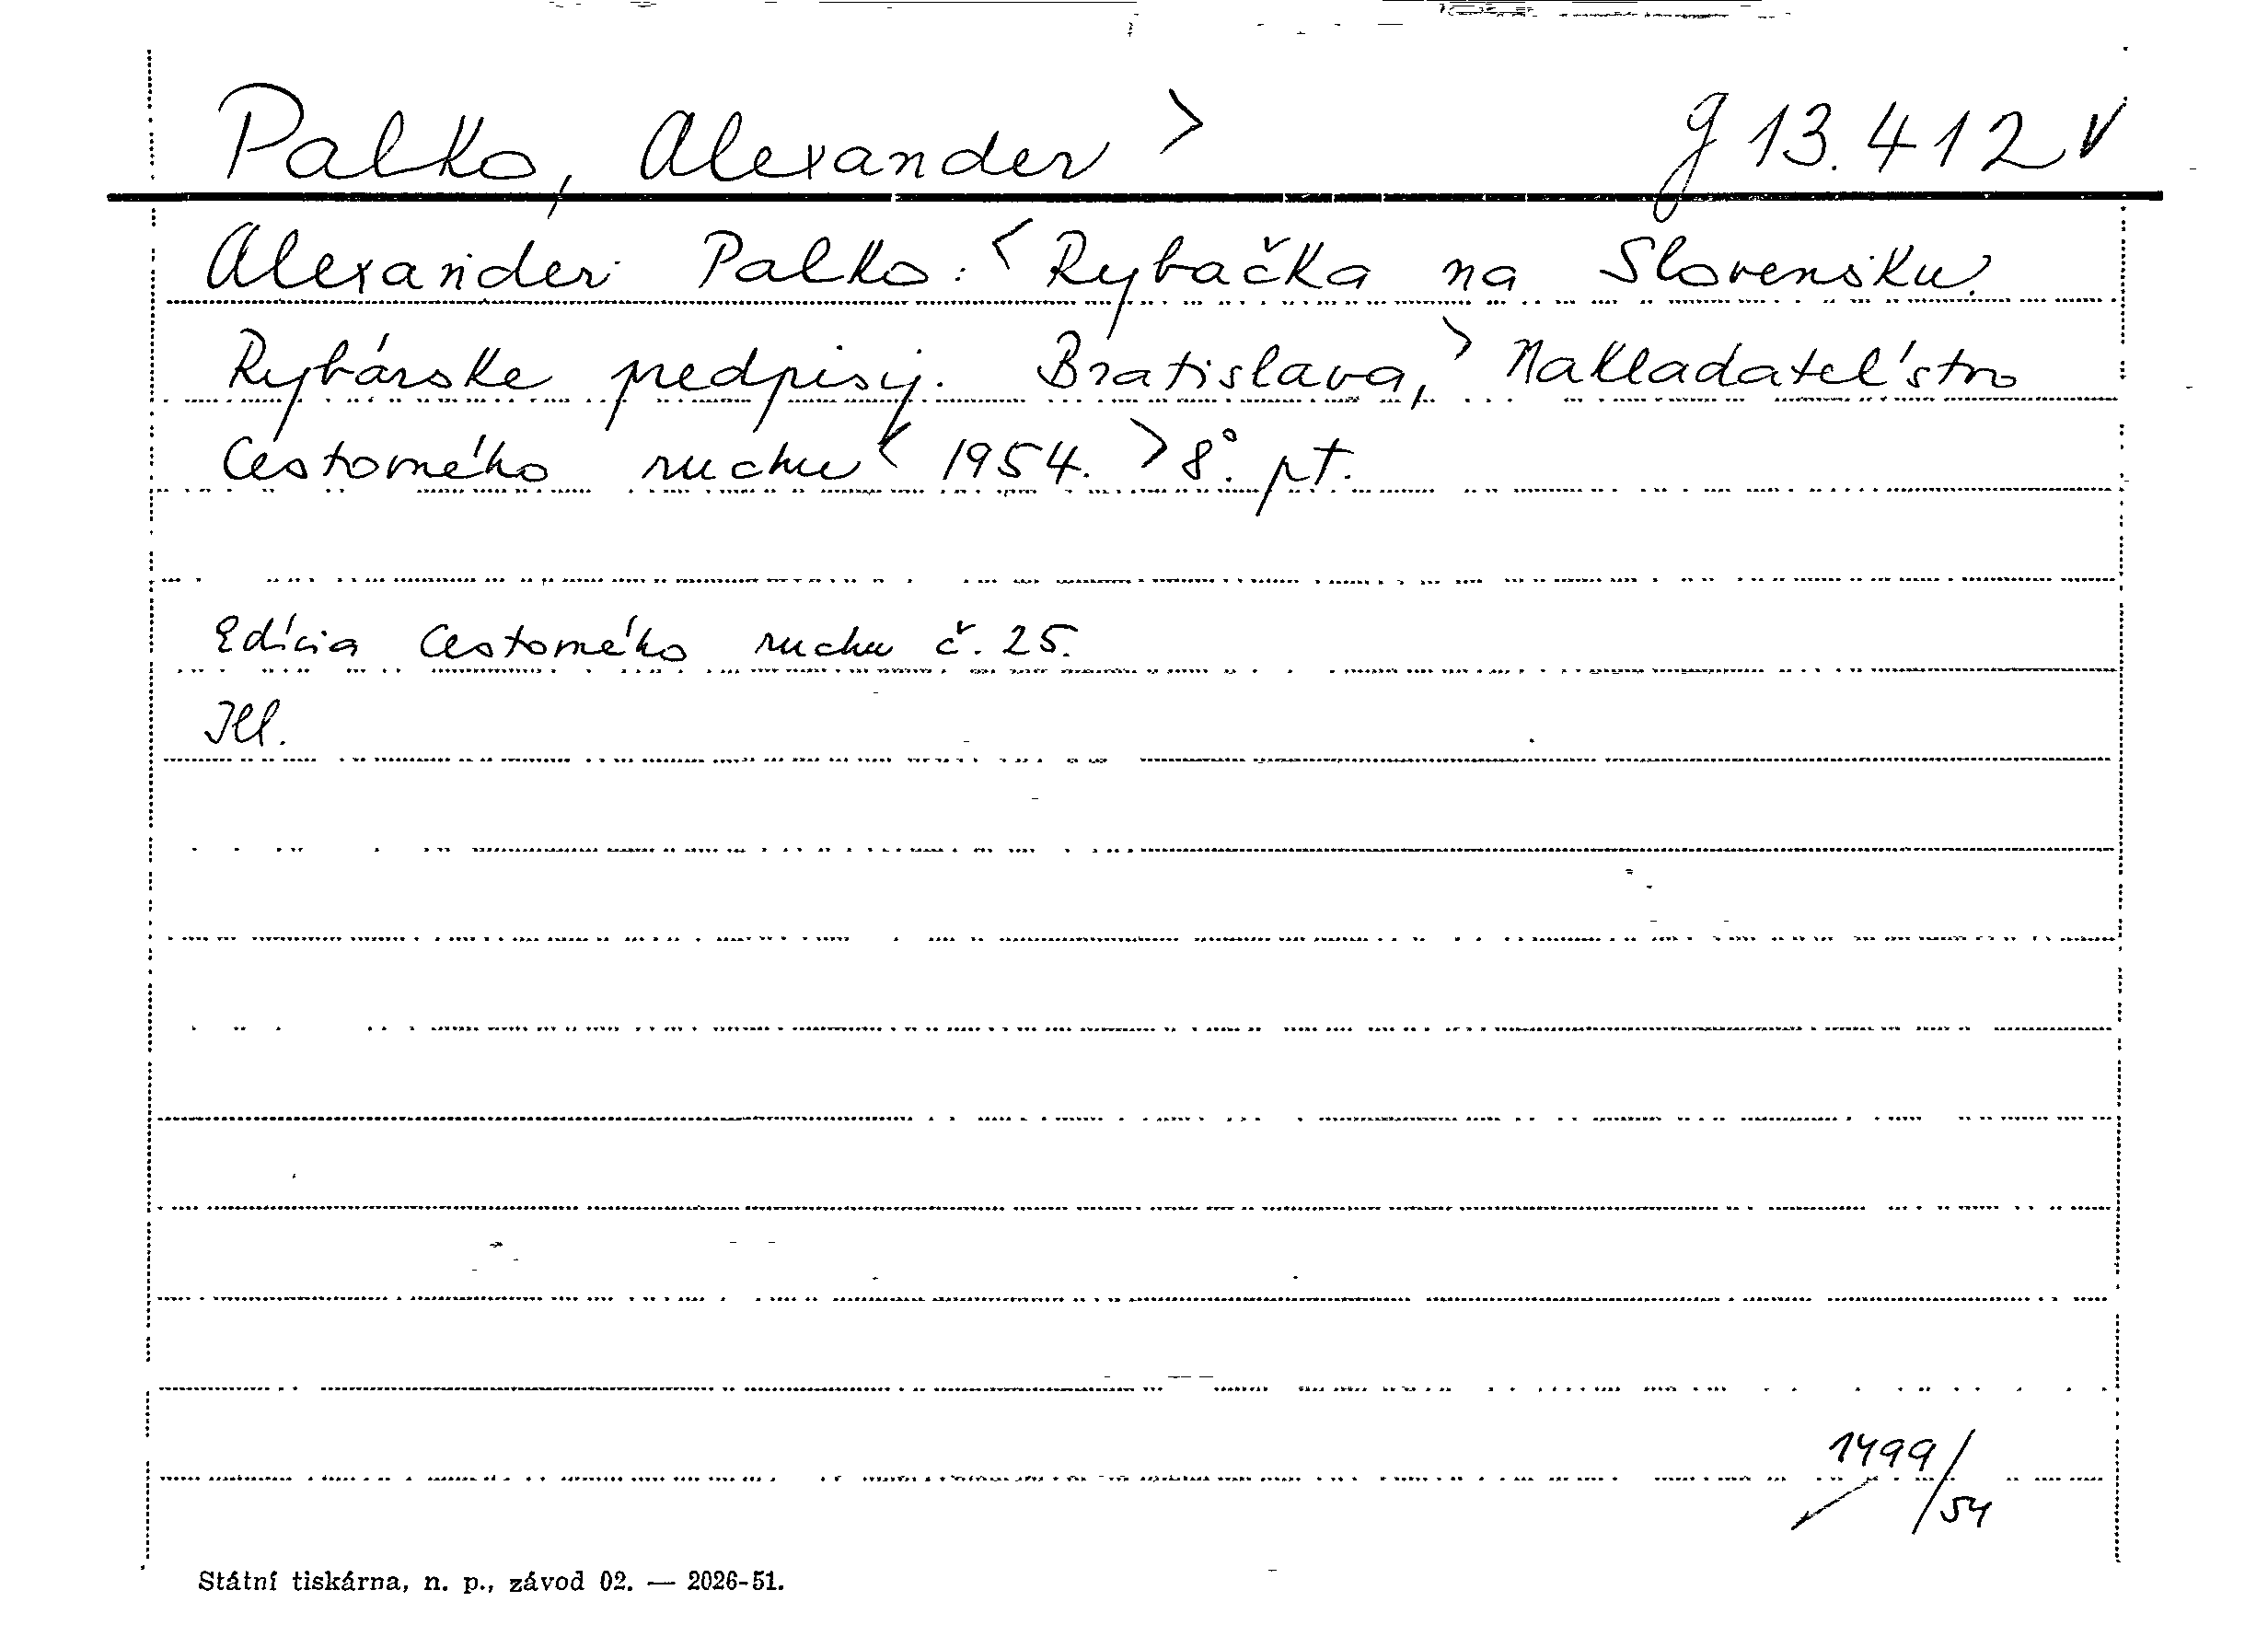 Palko, Alexander > g 13.412 v
Alexander Palko: < Rybačka na Slovensku.
Rybárske predpisy. Bratislava, > Nakladateľstvo
Cestovného ruchu < 1954. > 8°. pt.
Edícia Cestovného ruchu č. 25.
Ill.
1499/54
Státní tiskárna, n. p., závod 02. — 2026-51.